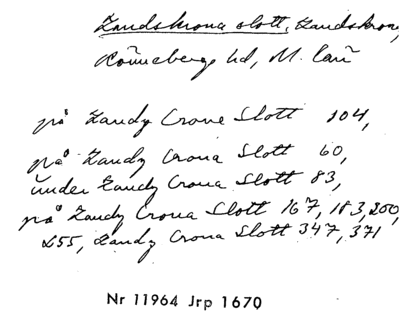 Landskrona slott, Landskrona,
Rönnebergs hd, M. län
på Landz Crone Slott 104,
på Landz Crona Slott 60,
under Landz Crona Slott 83,
på Landz Crona Slott 167, 183, 200,
255, Landz Crona Slott 347, 371
Nr 11964 Jrp 1670